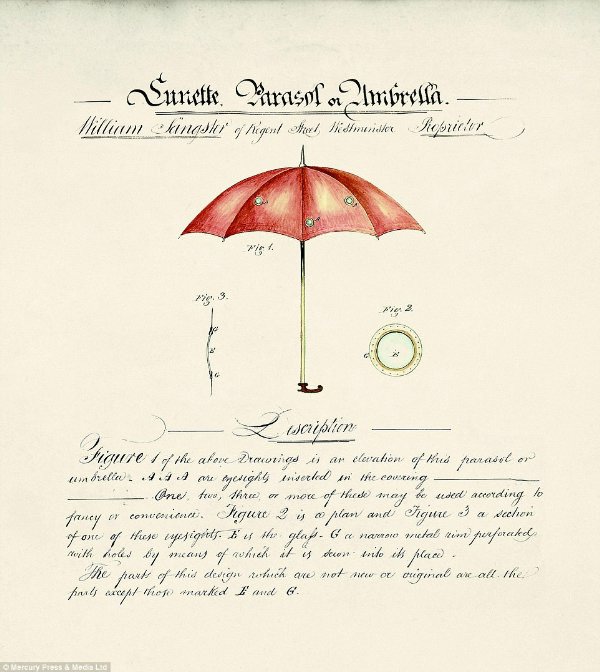 Lunette Parasol or Umbrella.
William Sangster of Regent Street, Westminster Proprietor
A A A
Fig. 1.
Fig. 3.
G
E
G
Fig. 2.
G
E
Description
Figure 1 of the above Drawings is an elevation of this parasol or
umbrella. A A A are eyesights inserted in the covering
One, two, three or more of these may be used according to
fancy or convenience. Figure 2 is a plan and Figure 3 a section
of one of these eyesights. E is the glass. G a narrow metal rim perforated
with holes by means of which it is sewn into its place.
The parts of this design which are not new or original are all the
parts except those marked E and G.
© Mercury Press & Media Ltd